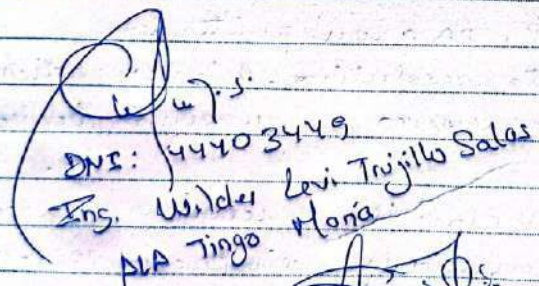 DNI: 44403449
Ing. Wilder Levi Trujillo Salas
ALA Tingo María